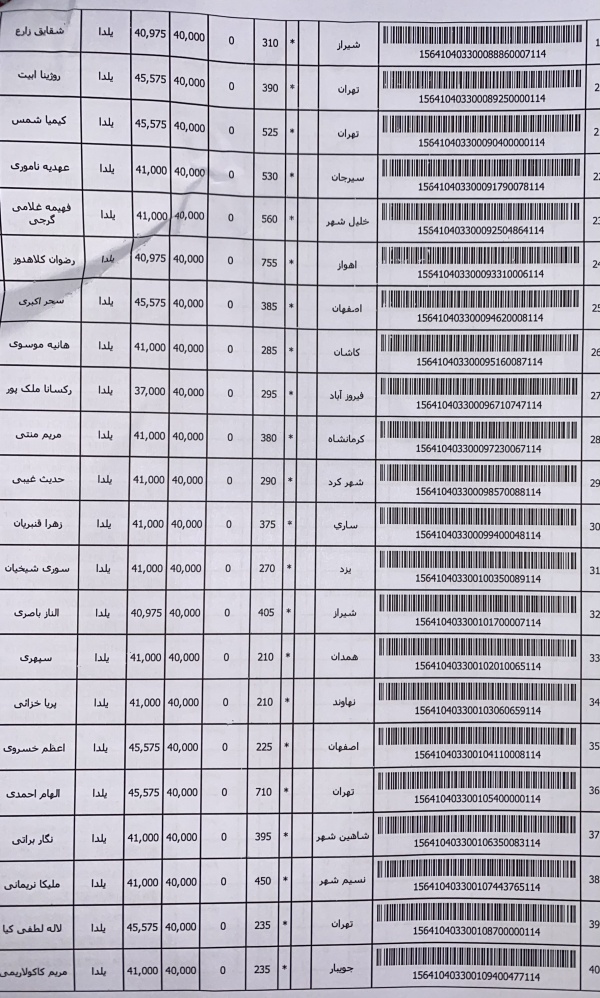 1 156410403300088860007114 شیراز * 310 0 40,000 40,975 یلدا شقایق زارع
2 156410403300089250000114 تهران * 390 0 40,000 45,575 یلدا روژینا ابیت
2 156410403300090400000114 تهران * 525 0 40,000 45,575 یلدا کیمیا شمس
22 156410403300091790078114 سیرجان * 530 0 40,000 41,000 یلدا عهدیه ناموری
23 156410403300092504864114 خلیل شهر * 560 0 40,000 41,000 یلدا فهیمه غلامی
گرجی
24 156410403300093310006114 اهواز * 755 0 40,000 40,975 یلدا رضوان کلاهدوز
25 156410403300094620008114 اصفهان * 385 0 40,000 45,575 یلدا سحر اکبری
26 156410403300095160087114 کاشان * 285 0 40,000 41,000 یلدا هانیه موسوی
27 156410403300096710747114 فیروز آباد * 295 0 40,000 37,000 یلدا رکسانا ملک پور
28 156410403300097230067114 کرمانشاه * 380 0 40,000 41,000 یلدا مریم منتی
29 156410403300098570088114 شهر کرد * 290 0 40,000 41,000 یلدا حدیث غیبی
30 156410403300099400048114 ساري * 375 0 40,000 41,000 یلدا زهرا قنبریان
31 156410403300100350089114 یزد * 270 0 40,000 41,000 یلدا سوری شیخیان
32 156410403300101700007114 شیراز * 405 0 40,000 40,975 یلدا الناز باصری
33 156410403300102010065114 همدان * 210 0 40,000 41,000 یلدا سپهری
34 156410403300103060659114 نهاوند * 210 0 40,000 41,000 یلدا پریا خزائی
35 156410403300104110008114 اصفهان * 225 0 40,000 45,575 یلدا اعظم خسروی
36 156410403300105400000114 تهران * 710 0 40,000 45,575 یلدا الهام احمدی
37 156410403300106350083114 شاهین شهر * 395 0 40,000 41,000 یلدا نگار براتی
38 156410403300107443765114 نسیم شهر * 450 0 40,000 41,000 یلدا ملیکا نریمانی
39 156410403300108700000114 تهران * 235 0 40,000 45,575 یلدا لاله لطفی کیا
40 156410403300109400477114 جویبار * 235 0 40,000 41,000 یلدا مریم کاکولاریمی